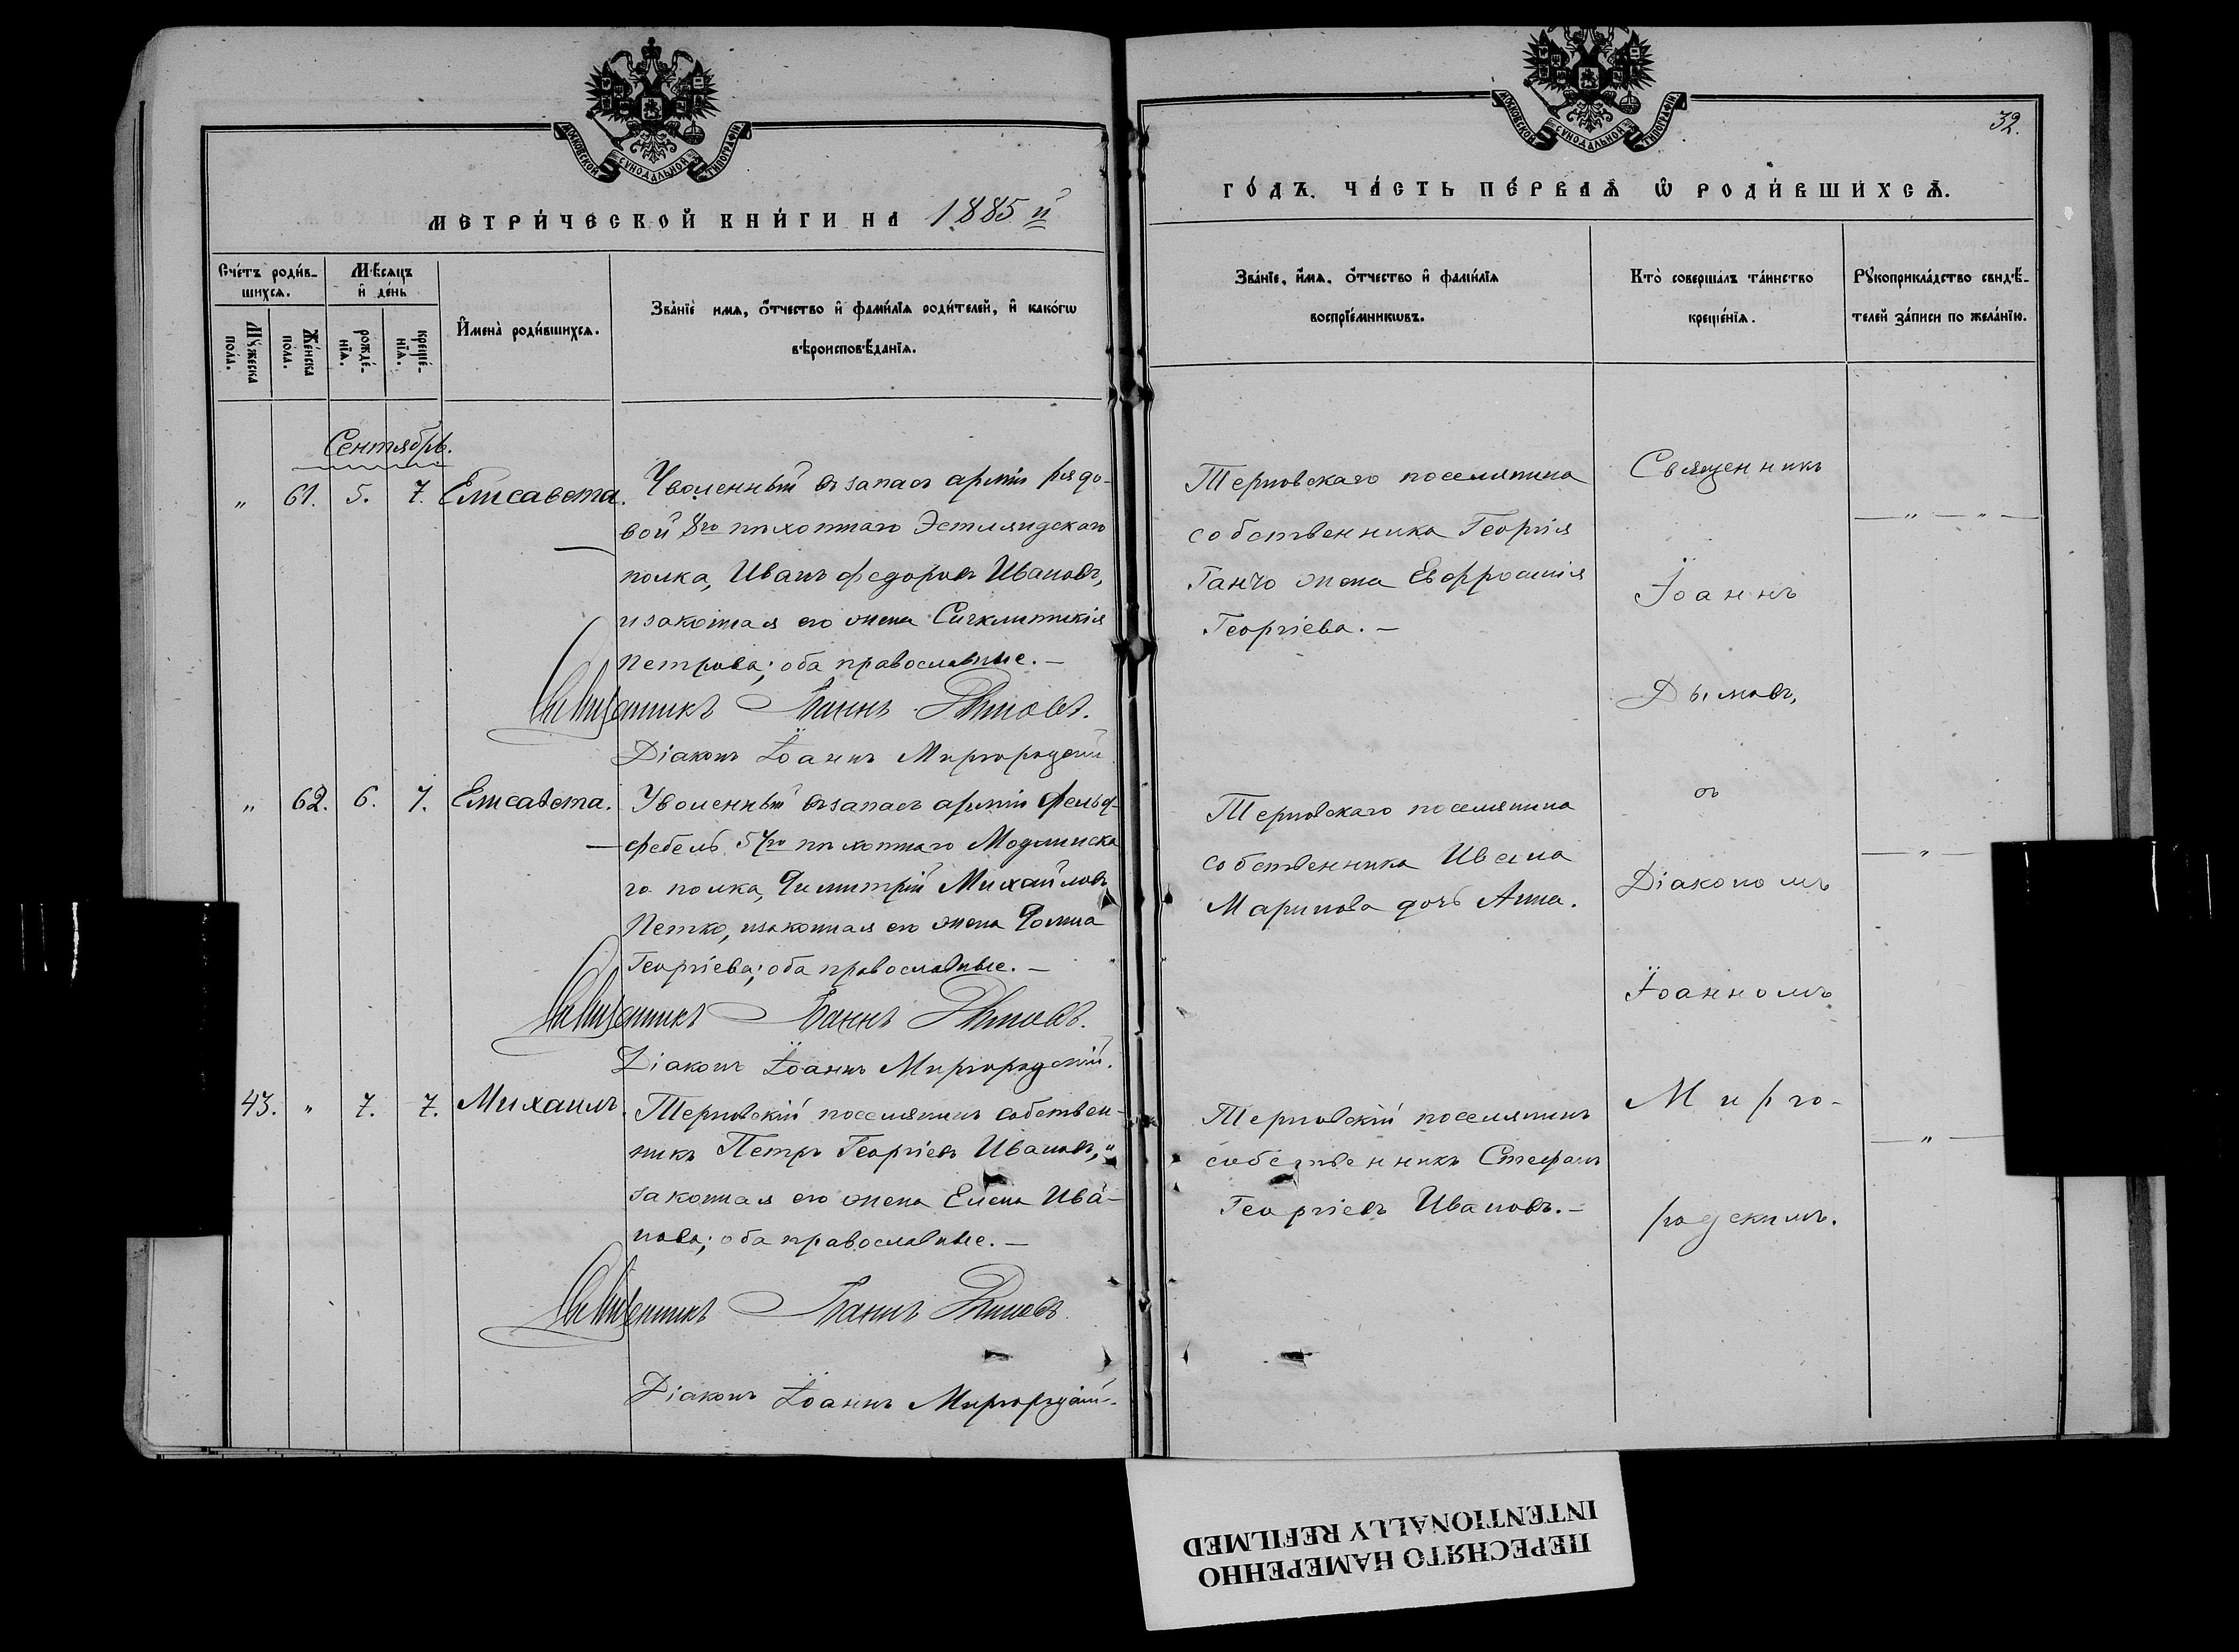 МОСКОВСКОЙ СУНОДАЛЬНОЙ ТИПОГРАФІИ
МЕТРИ́ЧЕСКОЙ КНИ́ГИ НА 1885 й
Сче́тъ роди́в-
шихся.
Мѣ́сяцъ
и҆ де́нь
Мꙋ́жеска
по́ла.
Же́нска
по́ла.
рожде́-
нїя.
креще́-
нїя.
И҆мена̀ роди́вшихся.
Зва́нїе имя, ѻ҆́тчество и҆ фами́лїя роди́телей, и҆ како́гѡ
вѣроисповѣ́данїя.
Сентябрь.
„ 61. 5. 7. Елисавета.
Уволенный въ запасъ арміи рядо-
вой 8го пѣхотнаго Эстляндскаго
полка, Иванъ Федоровъ Ивановъ,
и законная его жена Сигклитикія
Петрова; оба православные. —
Священникъ Іоаннъ Дымовъ.
Діаконъ Іоаннъ Миргородскій
„ 62. 6. 7. Елисавета.
Уволенный въ запасъ арміи фельд-
фебель 57го пѣхотнаго Модлинска
го полка, Димитрій Михайловъ
Петко, и законная его жена Домна
Георгіева; оба православные. —
Священникъ Іоаннъ Дымовъ.
Діаконъ Іоаннъ Миргородскій.
43. „ 7. 7. Михаилъ.
Терновскій поселянинъ собствен-
никъ Петръ Георгіевъ Ивановъ, и
законная его жена Елена Ива-
нова; оба православные. —
Священникъ Іоаннъ Дымовъ
Діаконъ Іоаннъ Миргородскій.
МОСКОВСКОЙ СУНОДАЛЬНОЙ ТИПОГРАФІИ
32.
ГО́ДЪ. ЧА́СТЬ ПЕ́РВАЯ Ѡ҆ РОДИ́ВШИХСЯ.
Зва́нїе, и҆́мя, ѻ҆́тчество и҆ фами́лїя
воспрїе́мникѡвъ.
Кто̀ соверша́лъ та́инство
креще́нїя.
Рꙋкоприкла́дство свидѣ́-
телей за́писи по жела́нїю.
Терновскаго поселянина
собственника Георгія
Ганчо жена Евфросинія
Георгіева. —
Терновскаго поселянина
собственника Ивана
Маринова дочь Анна.
Терновскій поселянинъ
собственникъ Стефанъ
Георгіевъ Ивановъ. —
Священникъ
Іоаннъ
Дымовъ,
съ
Діакономъ
Іоанномъ
Мирго-
родскимъ.
— „ — „ —
— „ —
— „ —
ПЕРЕСНЯТО НАМЕРЕННО
INTENTIONALLY REFILMED